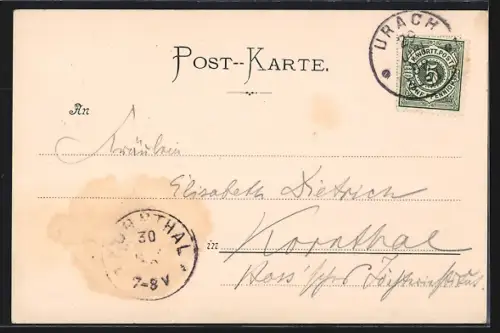 URACH
K. WÜRTT. POST
5
POST--KARTE.
An
Fräulein
Elisabeth Dietrich
in Kornthal
KORNTHAL
30
7-8V